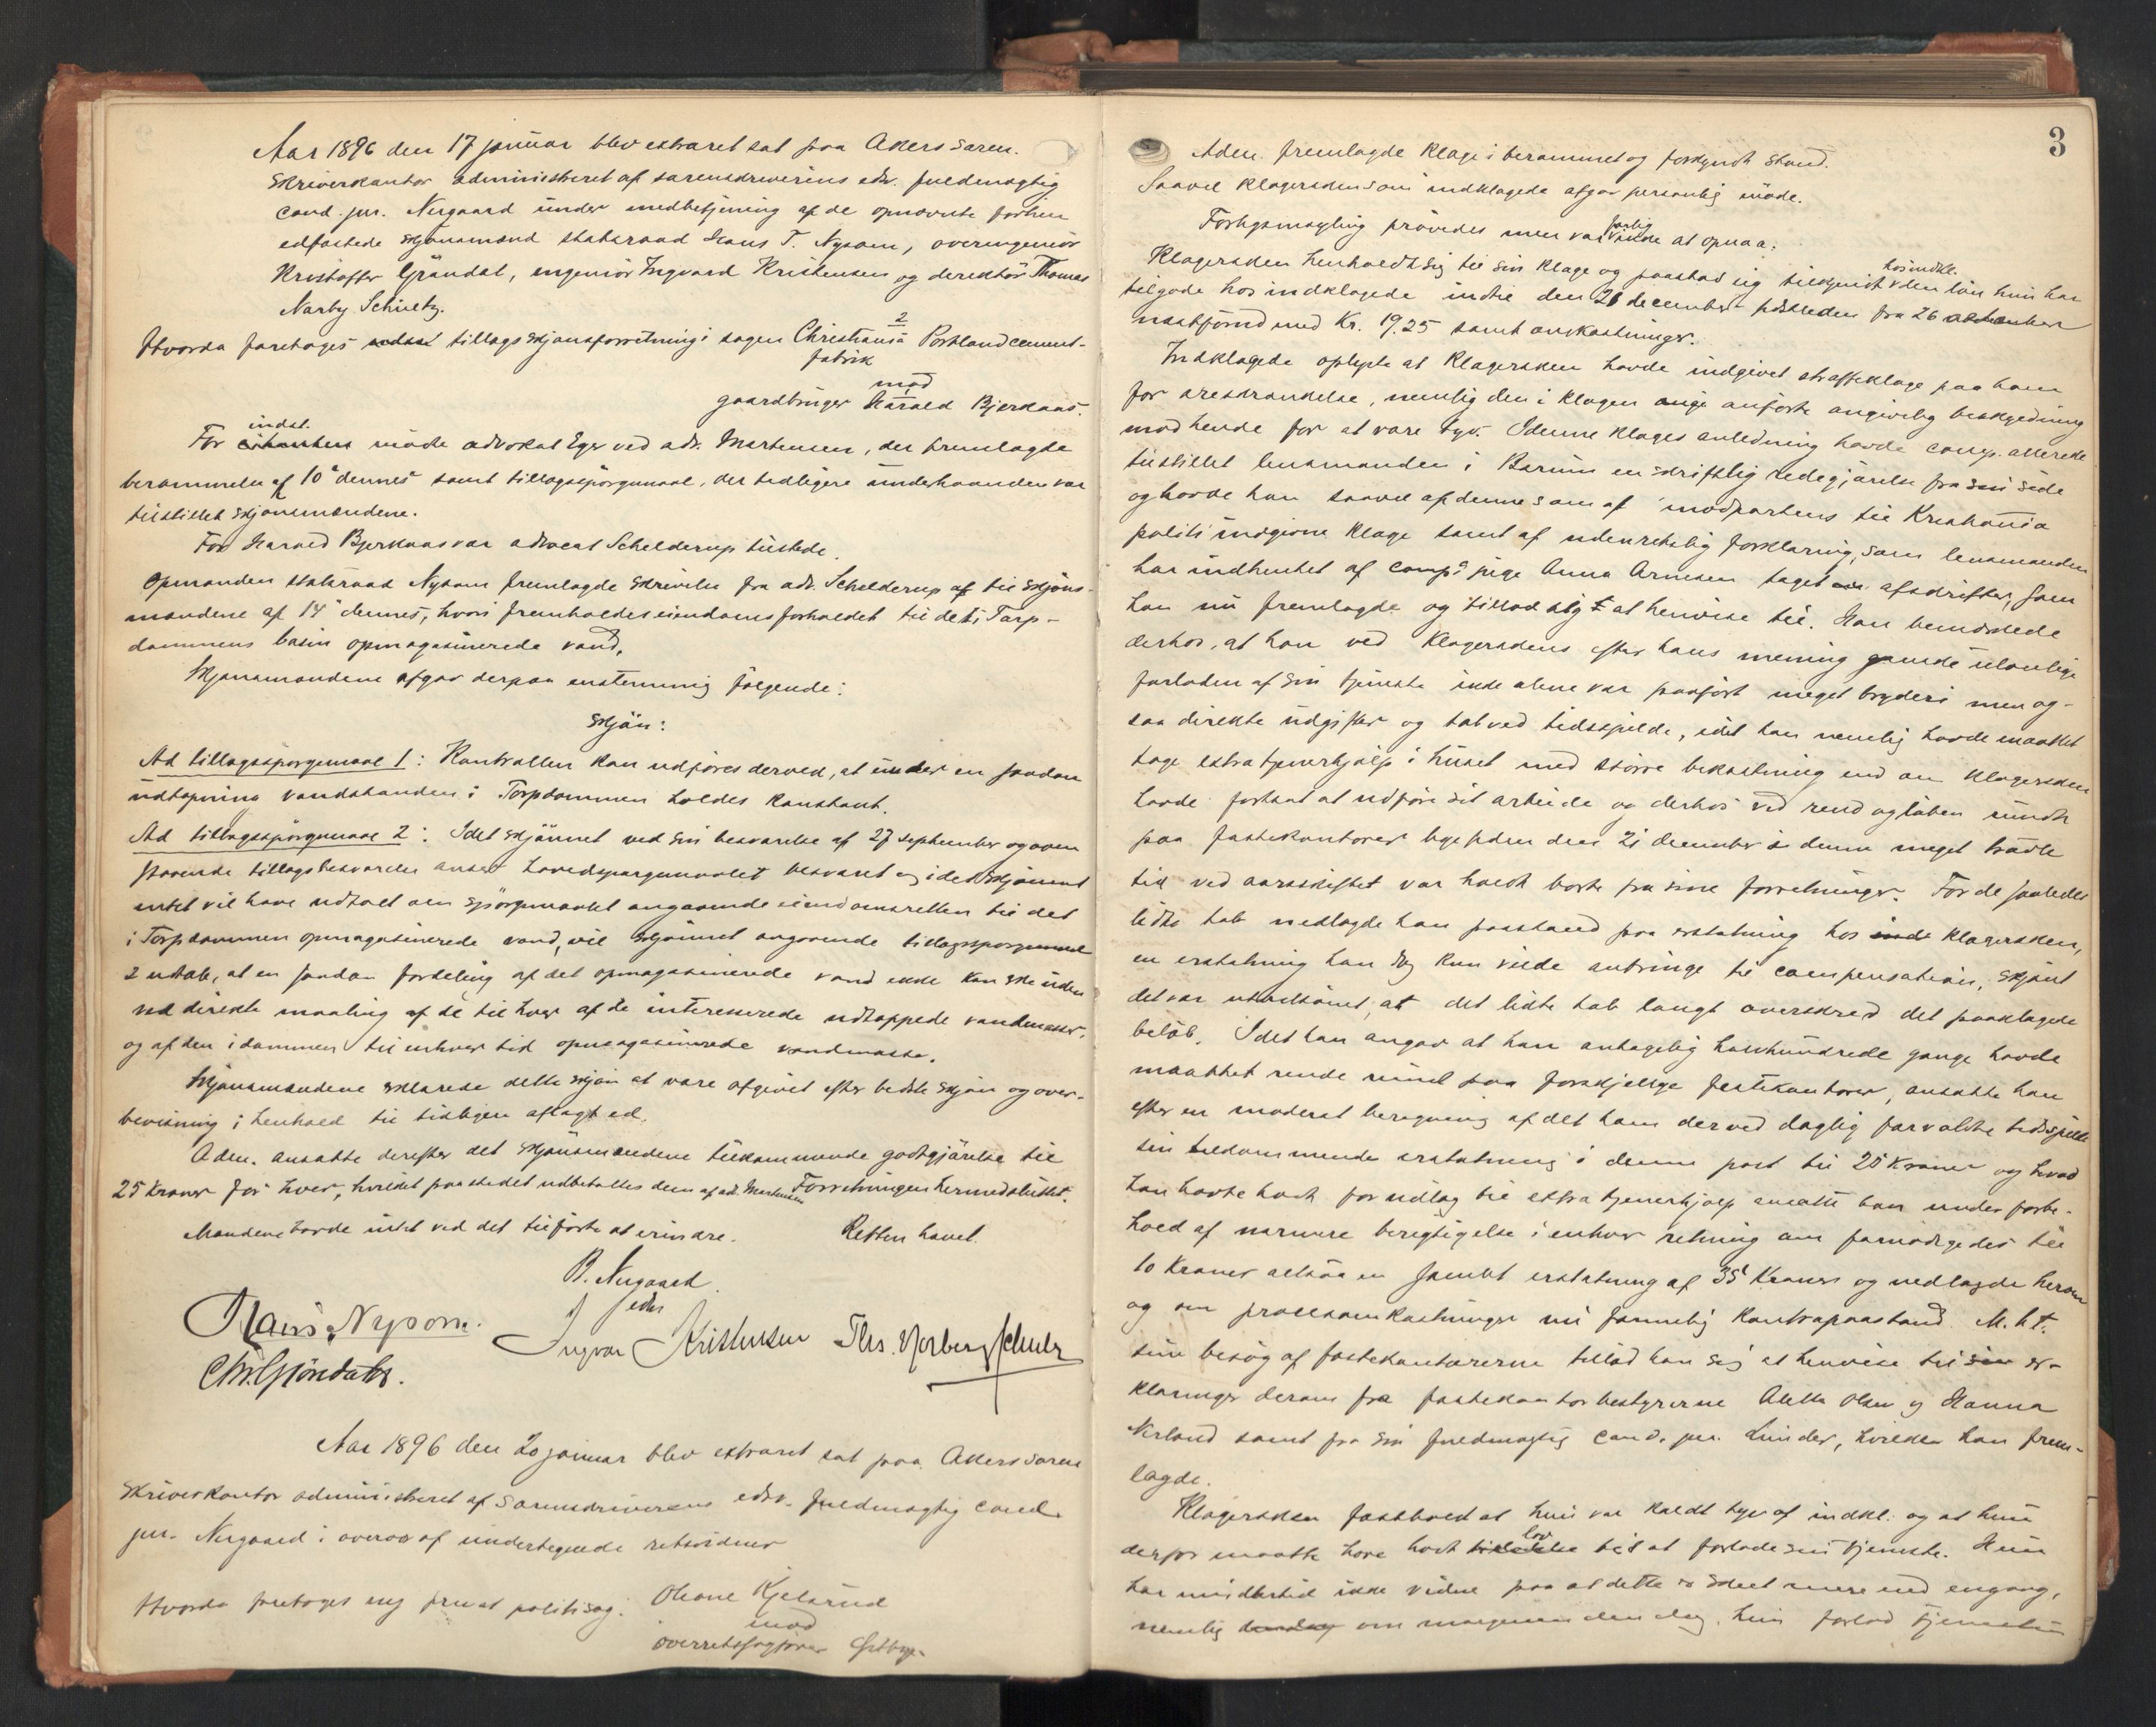 Aar 1896 den 17 januar blev extraret sat paa Akers soren-
skriverkontor administreret af sorenskriverens edsv. fuldmægtig
cand. jur. Nergaard under medbetjening af de opnævnte forhen
edfæstede skjønsmænd statsraad Hans T. Nysom, overingeniør
Kristoffer Gjøndal, ingeniør Ingvard Kristensen og direktør Thomas
Norby Schultz.
Hvorda foretages tillægsskjønsforretning i sagen Christiania Portlandcement-
2
fabrik
mod
gaardbruger Harald Bjerkaas.
indst.
For citanten mødte advokat Eger ved adv. Mortensen, der fremlagde
berammelse af 10de dennes samt tillægsspørgsmaal, der tidligere underhaanden var
tilstillet skjønsmændene.
For Harald Bjerkaas var advocat Schelderup tilstede.
Opmanden statsraad Nysom fremlagde skrivelse fra adv. Schelderup af til skjøns-
mændene af 14de dennes, hvori fremholdes eiendomsforholdet til det i Torp-
dammens basin opmagasinerede vand.
Skjønsmændene afgav derpaa enstemmig følgende:
Skjøn:
Ad tillægsspørgsmaal 1: Kontrollen kan udføres derved, at under en saadan
udtapning vandstanden i Torpdammen holdes konstant.
Ad tillægsspørgsmaal 2: Idet skjønnet ved sin besvarelse af 27 september og oven
staaende tillægsbesvarelse anser hovedspørgsmaalet besvaret og idet skjønnet
intet vil have udtalt om spørgsmaalet angaaende eiendomsretten til det
i Torpdammen opmagasinerede vand, vil skjønnet angaaende tillægsspørgsmaal
2 udtale, at en saadan fordeling af det opmagasinerede vand ikke kan ske uden
ved direkte maaling af de til hver af de interesserede udtappede vandmasser,
og af den i dammen til enhver tid opmagasinerede vandmasse.
Skjønsmændene erklærede dette skjøn at være afgivet efter bedste skjøn og over-
bevisning i henhold til tidligere aflagt ed.
Adm. ansatte derefter det skjønsmændene tilkommende godtgjørelse til
25 kroner for hver, hvilket paa stedet udbetaltes dem af adv. Mortensen Forretningen hermed sluttet.
Mændene havde intet ved det tilførte at erindre. Retten hævet.
B. Nergaard
edsv
Hans Nysom. Ingvar Kristensen Ths. Norberg Schulz
Chr. Gjøndahl.
Aar 1896 den 20 januar blev extraret sat paa Akers soren
skriverkontor administreret af sorenskriverens edsv. fuldmægtig cand.
jur. Nergaard i overvær af undertegnede retsvidner
Hvorda foretages ny privat politisag: Oleane Kjelsrud
mod
overretssagfører
3
Adm. fremlagde klage i berammet og forkyndt stand.
Saavel klagersken som indklagede afgav personlig møde.
Forligsmægling prøvedes men var ikke at opnaa.
forlig
Klagersken henholdt sig til sin klage og paastod sig tilkjendt den løn hun har
hos indkl.
tilgode hos indklagede indtil den 21 december sidstleden fra 26 oktober
næstførend med Kr. 19.25 samt omkostninger.
Indklagede oplyste at klagersken havde indgivet straffeklage paa ham
for æreskrænkelse, nemlig den i klagen anførte angivelig beskyldning
mod hende for at være tyv. I denne klages anledning havde comp. allerede
tilstillet lensmanden i Bærum en skriftlig redegjørelse fra sin side
og havde han saavel af denne som af modpartens til Kristiania
politi indgivne klage samt af udenretslig forklaring, som lensmanden
har indhentet af comps pige Anna Arnesen taget afskrifter, som
han nu fremlagde og tillod sig at henvise til. Han bemærkede
derhos, at han ved klagerskens efter hans mening ganske ulovlige
forladen af sin tjeneste ikke alene var paaført meget bryderi men og-
saa direkte udgifter og tab ved tidsspilde, idet han nemlig havde maattet
tage extra tjenerhjælp i huset med større bekostning end om klagersken
havde fortsat at udføre sit arbeide og derhos ved rend og løben rundt
paa fæstekontorer lige siden den 21 december i denne meget travle
tid ved aarsskiftet var holdt borte fra sine forretninger. For de saaledes
lidte tab nedlagde han paastand paa erstatning hos klagersken,
en erstatning han dog kun vilde anbringe til compensation, skjønt
det var utvilsomt, at det lidte tab langt overskred det paaklagede
beløb. Idet han angav at han antagelig halvhundrede gange havde
maattet rende rundt paa forskjellige fæstekontorer, ansatte han
efter en moderat beregning af det ham derved daglig forvoldte tidsspilde
sin tilkommende erstatning i denne post til 25 kroner og hvad
han havde havt for udlæg til extra tjenerhjælp ansatte han under forbe-
hold af nærmere berigtigelse i enhver retning om fornødiges til
10 kroner altsaa en samlet erstatning af 35 kroner og nedlagde herom
og om processomkostninger nu formelig kontrapaastand. M.h.t.
sine besøg af fæstekontorerne tillod han sig at henvise til er-
klæringer derom fra fæstekontorbestyrerne Alette Olsen og Hanna
Nerland samt fra sin fuldmægtig cand. jur. Linder, hvilke han frem-
lagde.
Klagersken fastholdt at hun var kaldt tyv af indkl. og at hun
derfor maatte have havt lov til at forlade sin tjeneste. Hun
har imidlertid ikke vidne paa at dette er skeet mere end engang,
nemlig om morgenen den dag, hun forlod tjenesten